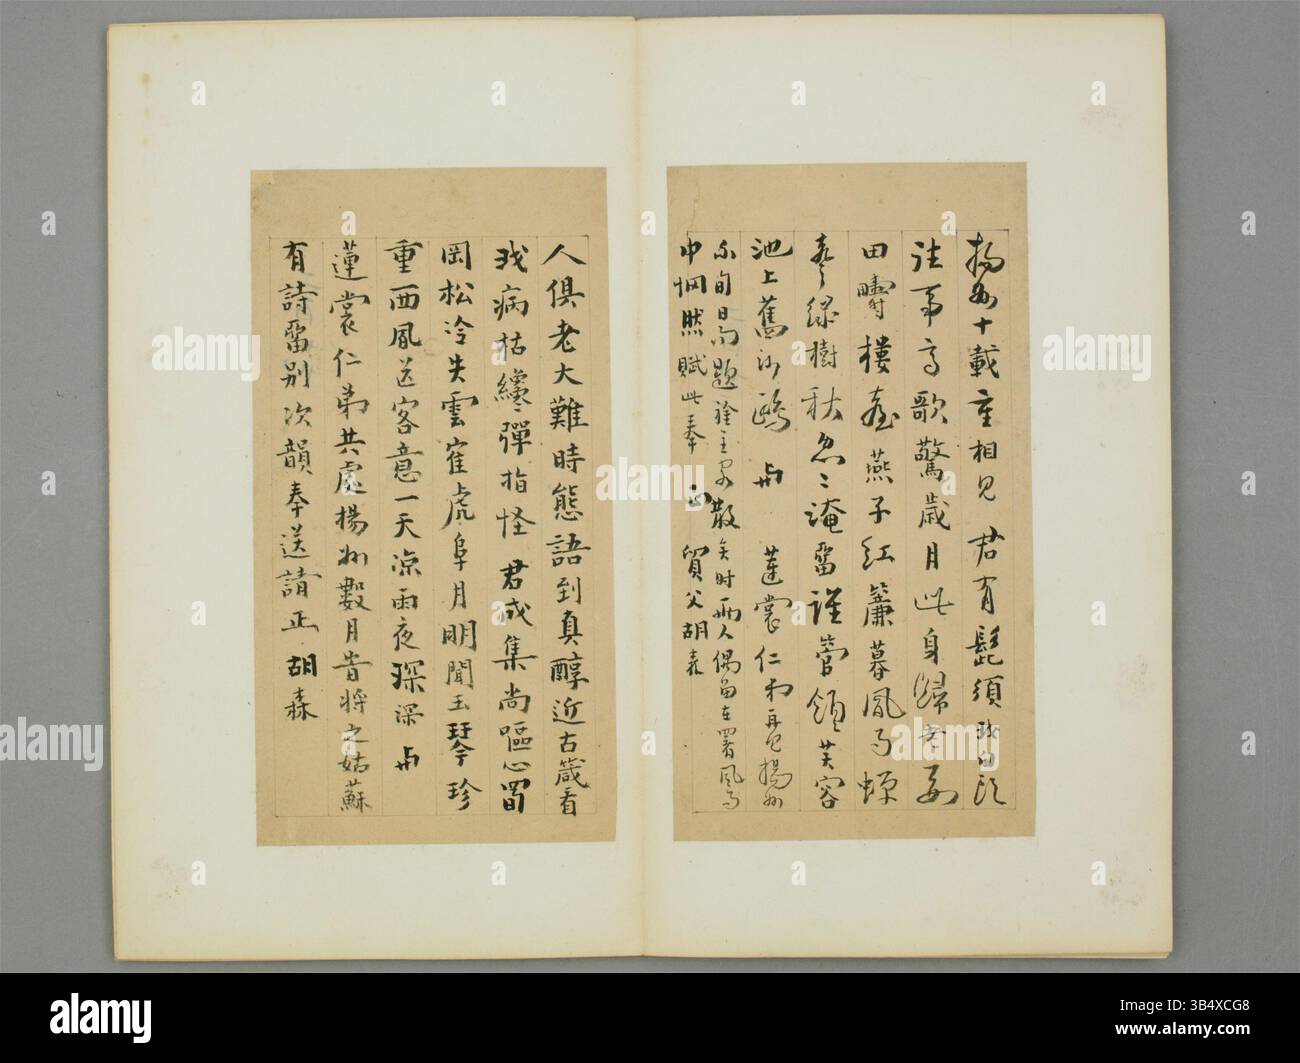 揚州十載重相見 君有髭須我白頭
往事高歌驚歲月此身歸
田疇樓臺燕子紅簾暮風
綠樹秋忽〻淹留誰管領芙容
池上舊沙鷗 与 蓮裳仁弟再見揚州
不旬日而題途主
中惘然賦此奉 正 質父胡森
人俱老大難時態語到真醇近古箴看
我病枯纔彈指怪 君成集尚嘔心蜀
岡松冷失雲寉虎阜月明聞玉琴珍
重西風送客意一天凉雨夜琛深 与
蓮裳仁弟共處揚州數月昔將之姑蘇
有詩留别次韻奉送請正 胡森
alamy
Image ID: 3B4XCG8
www.alamy.com